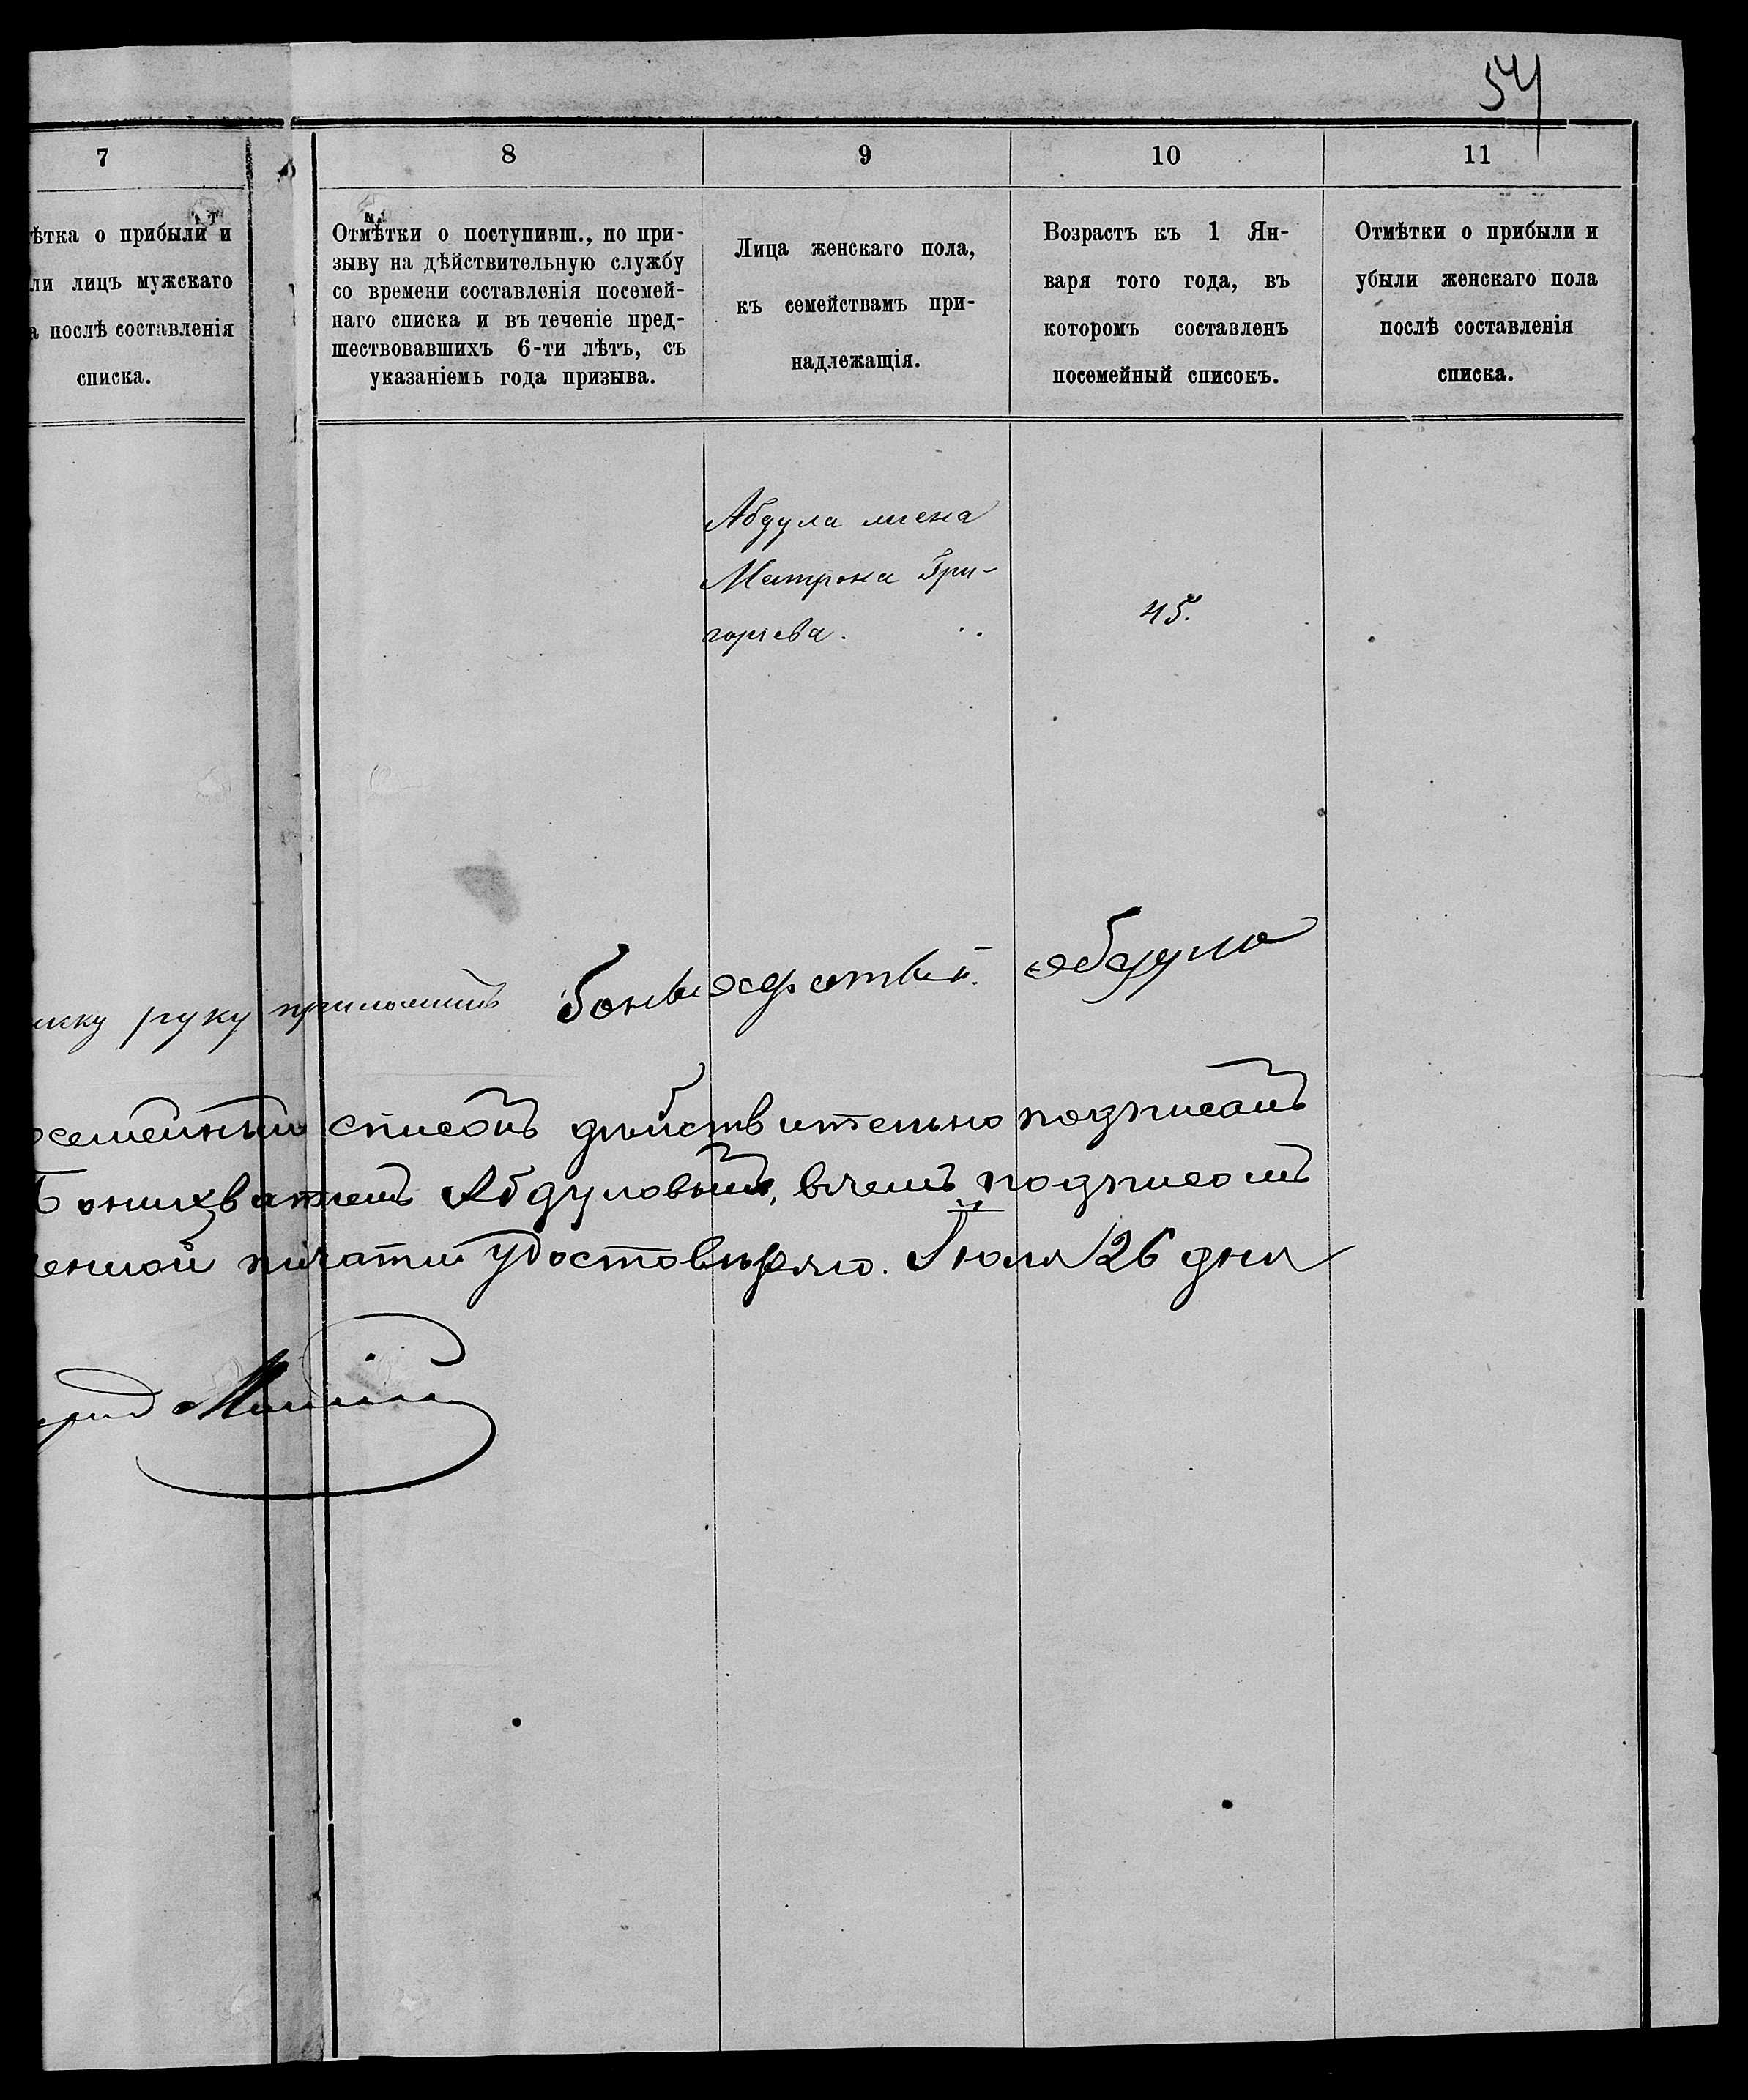 54
7
8
9
10
11
ѣтка о прибыли и
ли лицъ мужскаго
а послѣ составленія
списка.
Отмѣтки о поступивш., по при-
зыву на дѣйствительную службу
со времени составленія посемей-
наго списка и въ теченіе пред-
шествовавшихъ 6-ти лѣтъ, съ
указаніемъ года призыва.
Лица женскаго пола,
къ семействамъ при-
надлежащія.
Возрастъ къ 1 Ян-
варя того года, въ
которомъ составленъ
посемейный списокъ.
Отмѣтки о прибыли и
убыли женскаго пола
послѣ составленія
списка.
Абдула жена
Матрона Гри-
горіева.
45.
иску руку приложилъ абдула
осемейный списокъ дѣйствительно подписанъ
Абдуловымъ, вчемъ подписомъ
енной печати удостовѣряю. Іюля 26 дня